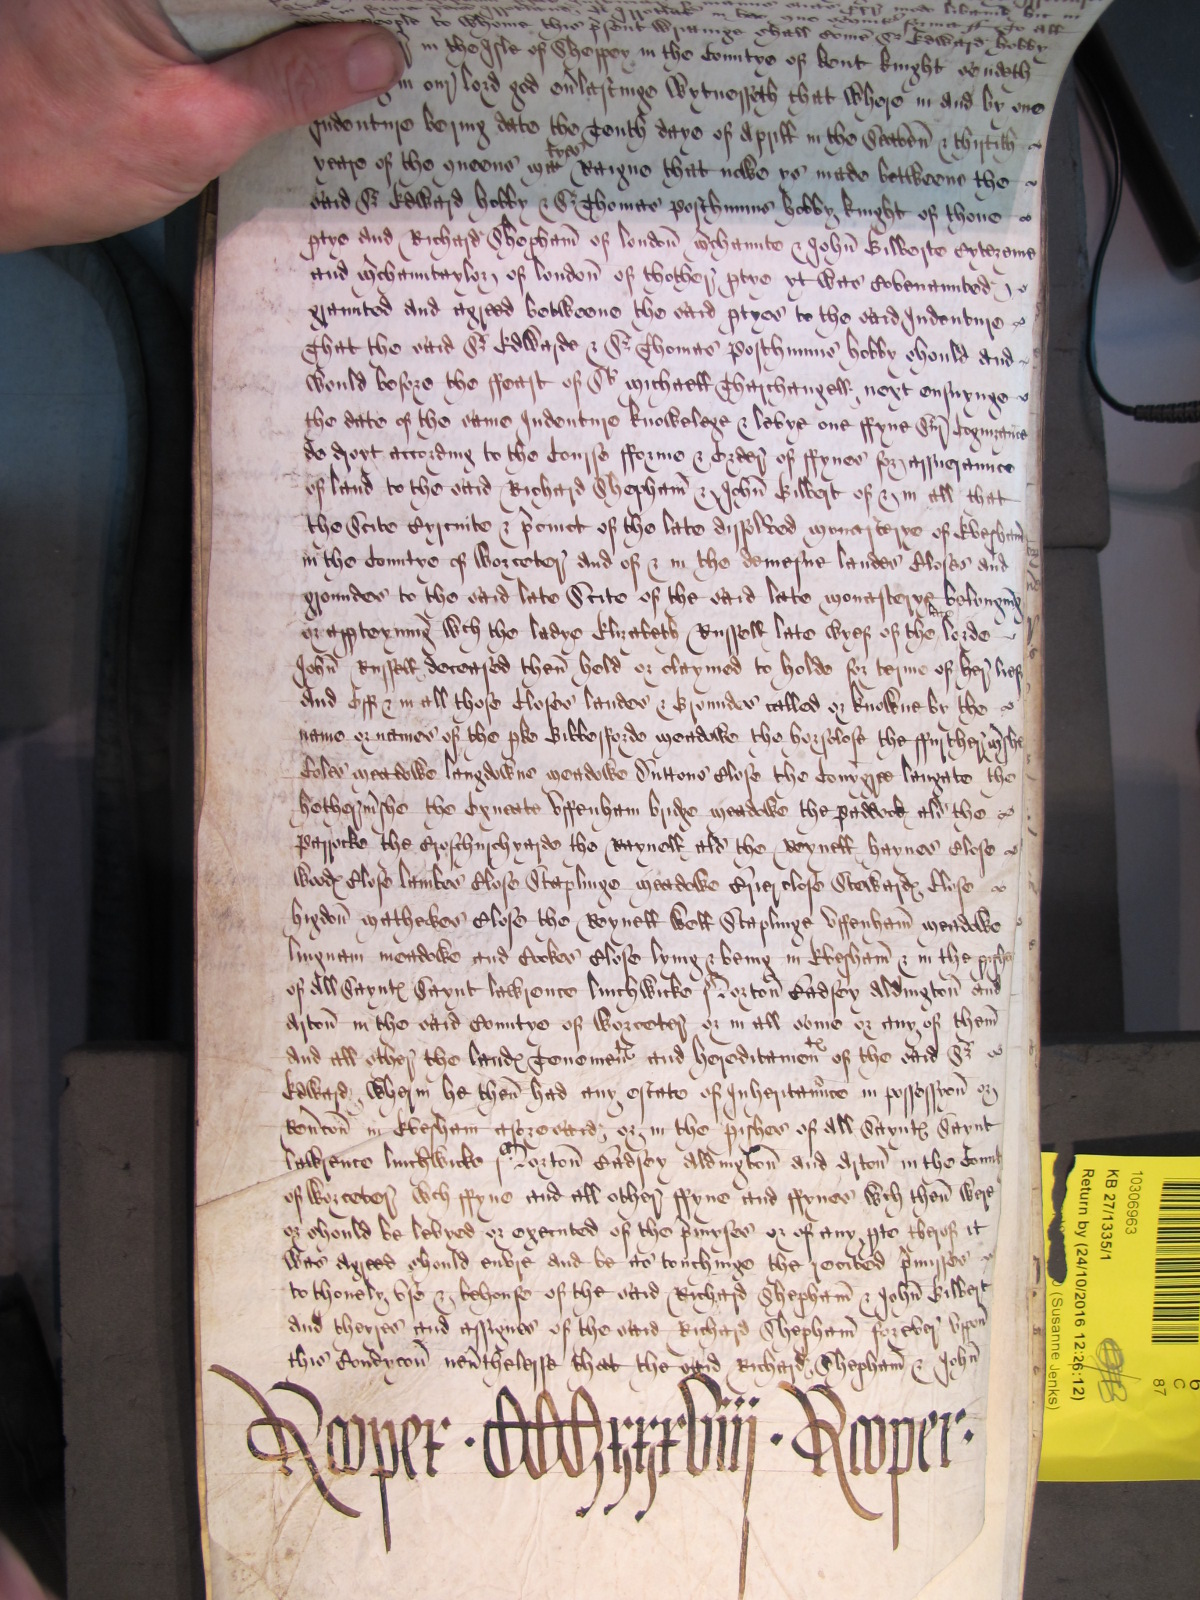 people to whome this p'sent writinge shall come Sr Edward hobby
in the Isle of Sheppey in the Countye of kent knight sendeth
in our lord god ev'lastinge wytnesseth that where in and by one
Indenture bering date the Tenth daye of Aprill in the Seaven & thirtith
yeare of the queens mats Raigne that nowe ys made betweene the
said Sr Edward hobby & Sr Thomas posthumus hobby knight of thone
ptye and Richard Shepham of london m'chante & John Gilberte Cytezeine
and m'chanttaylor of london of thother ptye yt was Covenaunted
graunted and agreed betweene the said ptyes to the said Indenture
That the said Sr Edwarde & Sr Thomas Posthumus hobby should and
would before the ffeast of St michaell Tharchangell next ensuynge
the date of the same Indenture knowelege & levye one ffyne Sur Cognizance
de droyt according to the Course fforme & Order of ffynes for assueraunce
of land to the said Richard Shepham & John Gilbert of & in all that
the Scite Cyrcuite & p'cinct of the late dissolved monasterye of Evesham
in the Countye of Worcester and of & in the demesne landes Closes and
groundes to the said late Scite of the said late monasterye belonging
or apperteyning wch the ladye Elizabeth Russell late wyef of the late lorde
John Russell deceased then held or claymed to holde for terme of her lief
And Off & in all those Closes landes & Groundes called or knowne by the
name or names of the pke Gibbesforde meadowe the horsclose the ffurther
Coles meadowe langdowne meadowe Suttons Close the Conygree langate the
the Offenham bridge meadowe the paddock als the
Parrocke the Churchyarde the Raynell als the Reynell haynes Close
Woodx Close lambes Close Staplinge meadowe close Stewardx Close
higdon mathewes Close the Reynell Well Staplinge Offenham meadowe
lingnam meadowe and Cookes Close lying & being in Evesham & in the pishes
of All Sayntx Saynt lawrence linchwicke Norton Badsey Aldington and
Aston in the said Countye of Worcester or in all some or any of them
and all other the landx Tenementx and hereditamentx of the said Sr
Edward Wherin he then had any estate of Inheritaunce in possession or
Rev'con in Evesham aforesaid or in the pishes of All Sayntx Saynt
lawrence linchwicke Norton Badsey Aldington and Aston in the Countye
of Worcester wch ffyne and all other ffyne and ffynes wch then were
or should be levyed or executed of the p'mysses or of any pte therof it
was agreed should enure and be as touchinge the recited p'misses
to thonely use & behoufe of the said Richard Shepham & John Gilbert
and theyres and assignes of the said Richard Shepham forever Uppon
this Condycon nev'thelesse that the said Richard Shepham & John
Rooper · CCCCxxxxviij · Rooper ·
10306963
KB 27/1335/1
Return by (24/10/2016 12:26:12)
(Susanne Jenks)
C
87